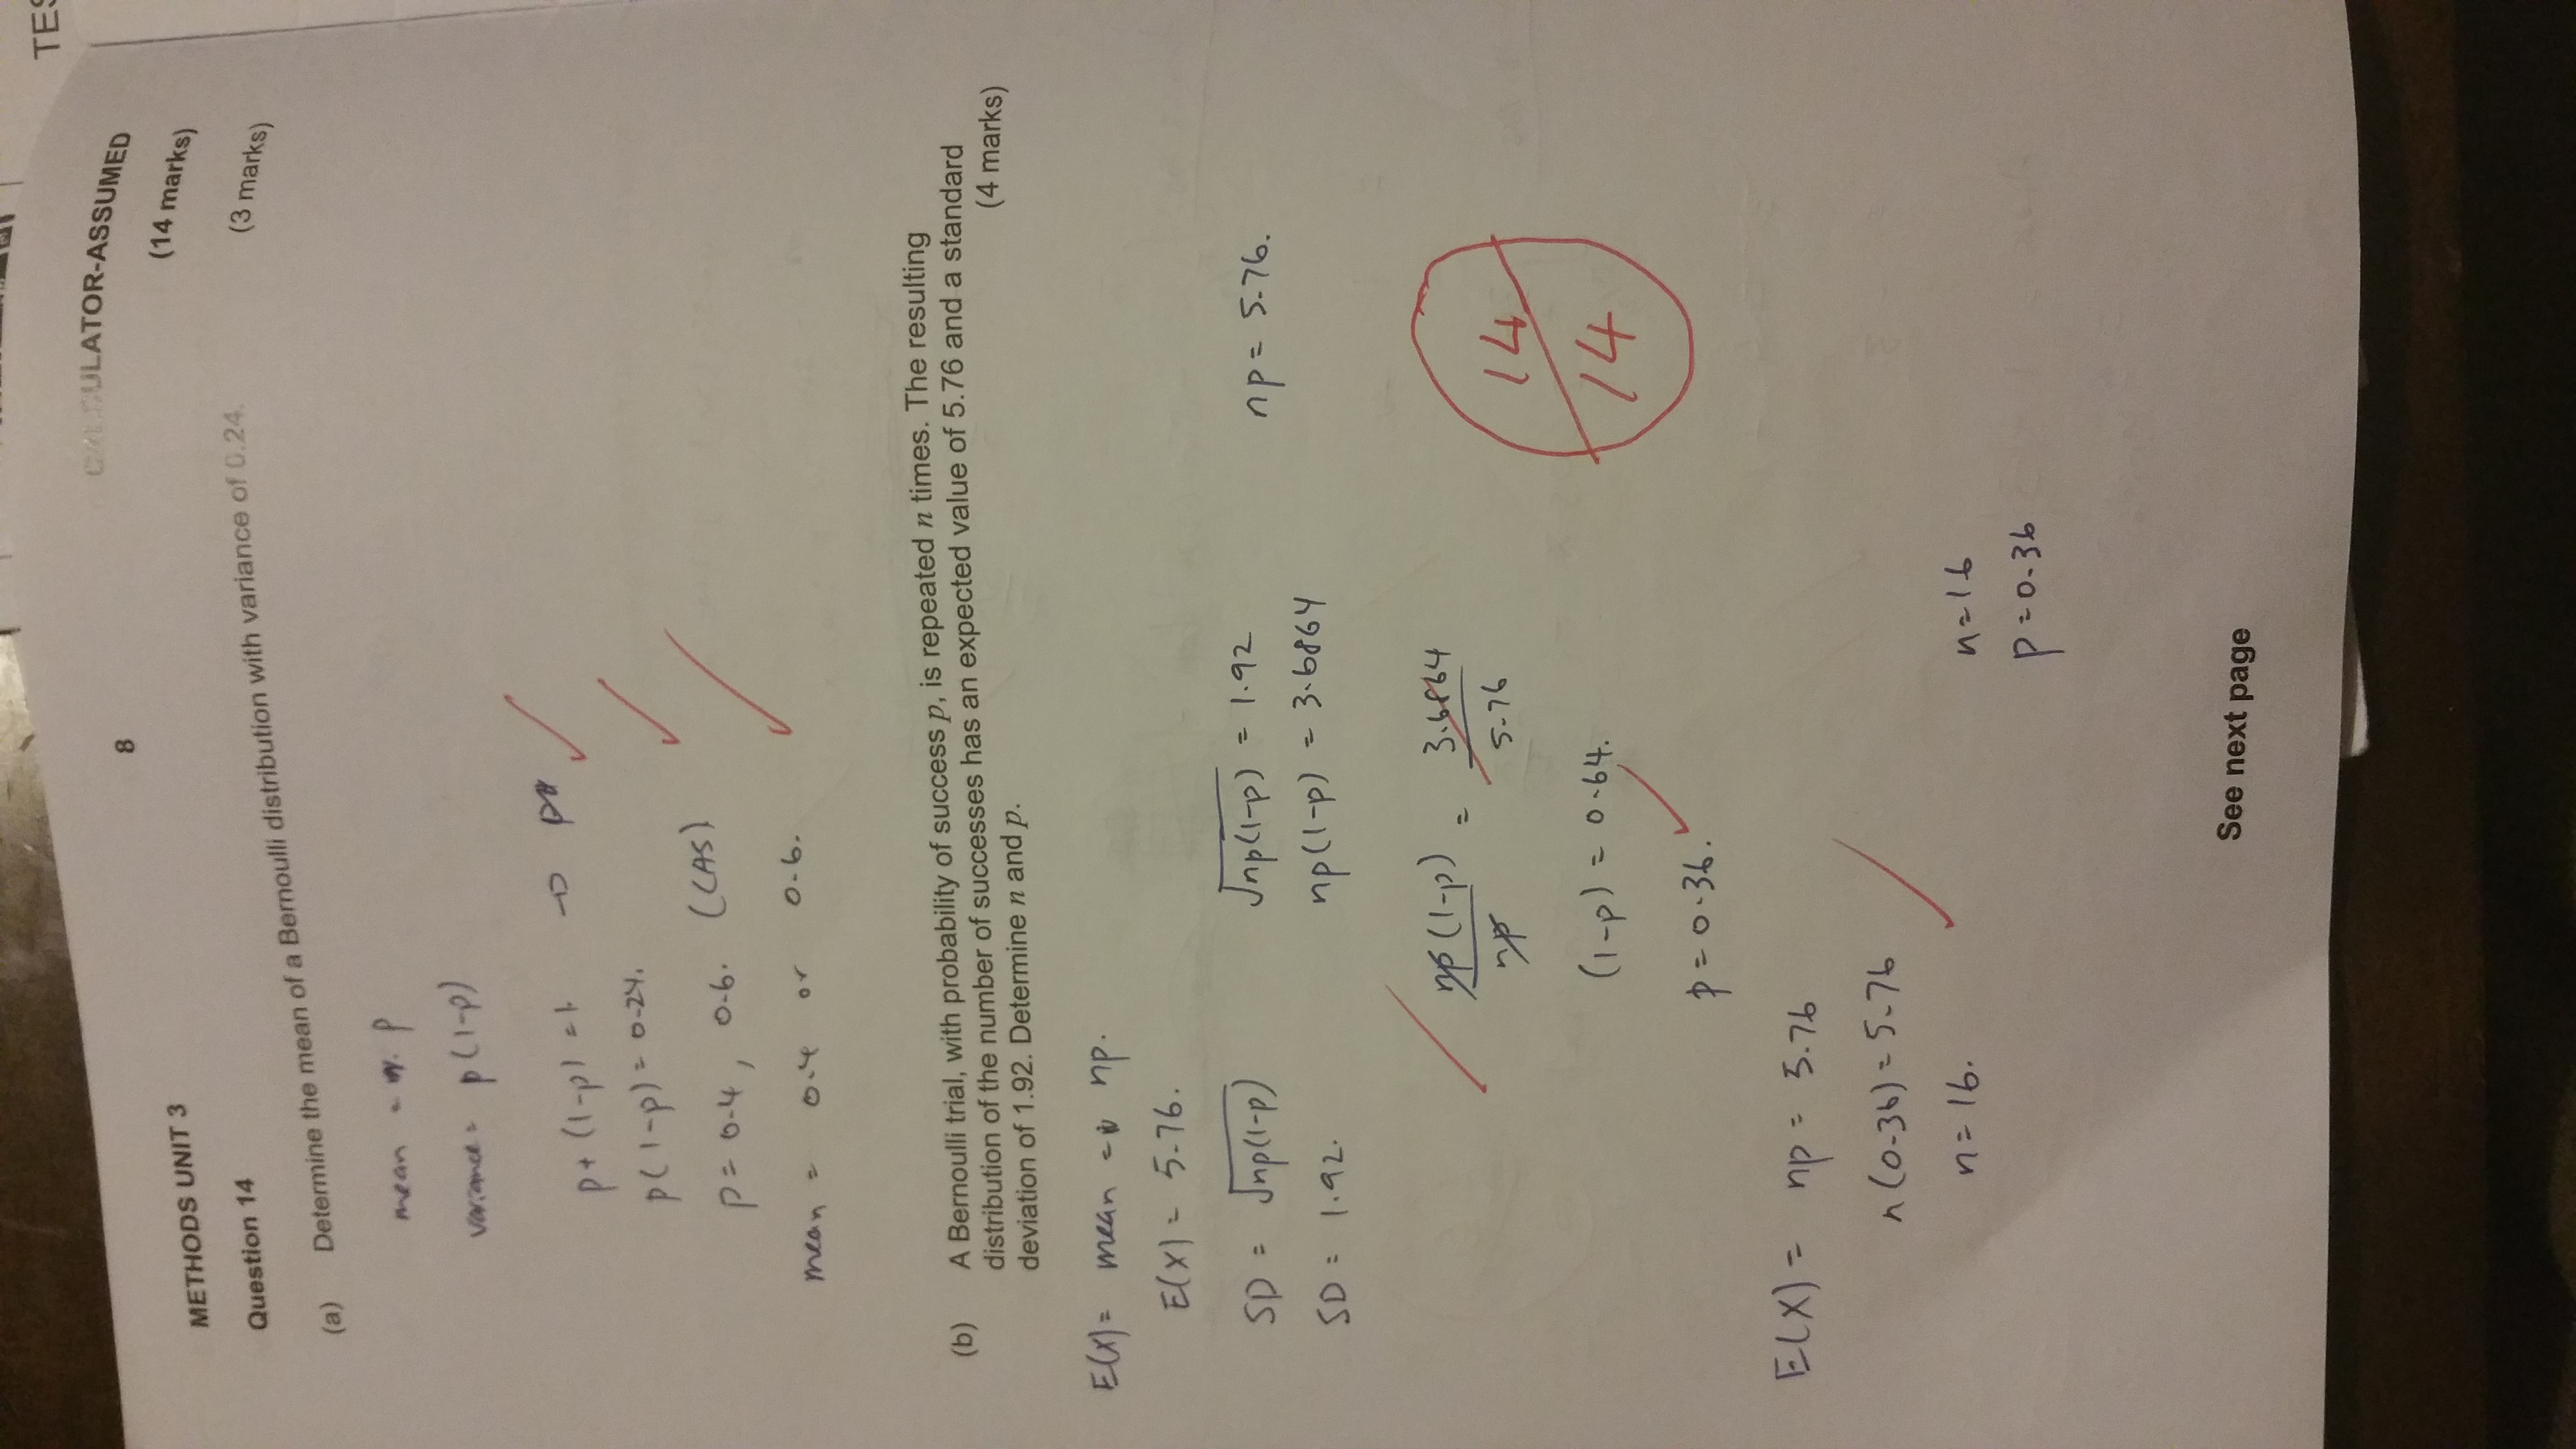 TES
8
CALCULATOR-ASSUMED
METHODS UNIT 3
(14 marks)
Question 14
(a) Determine the mean of a Bernoulli distribution with variance of 0.24.
(3 marks)
mean = p
variance = p(1-p)
p + (1-p) = 1 → p
p(1-p) = 0.24.
p = 0.4, 0.6. (CAS)
mean = 0.4 or 0.6.
(b) A Bernoulli trial, with probability of success p, is repeated n times. The resulting
distribution of the number of successes has an expected value of 5.76 and a standard
deviation of 1.92. Determine n and p.
(4 marks)
E(X) = mean = np.
E(X) = 5.76.
SD = √np(1-p) √np(1-p) = 1.92 np = 5.76.
SD = 1.92. np(1-p) = 3.6864
np(1-p) = 3.6864
np 5.76
14
14
(1-p) = 0.64.
p = 0.36.
E(X) = np = 5.76
n(0.36) = 5.76
n = 16.
n = 16
p = 0.36
See next page